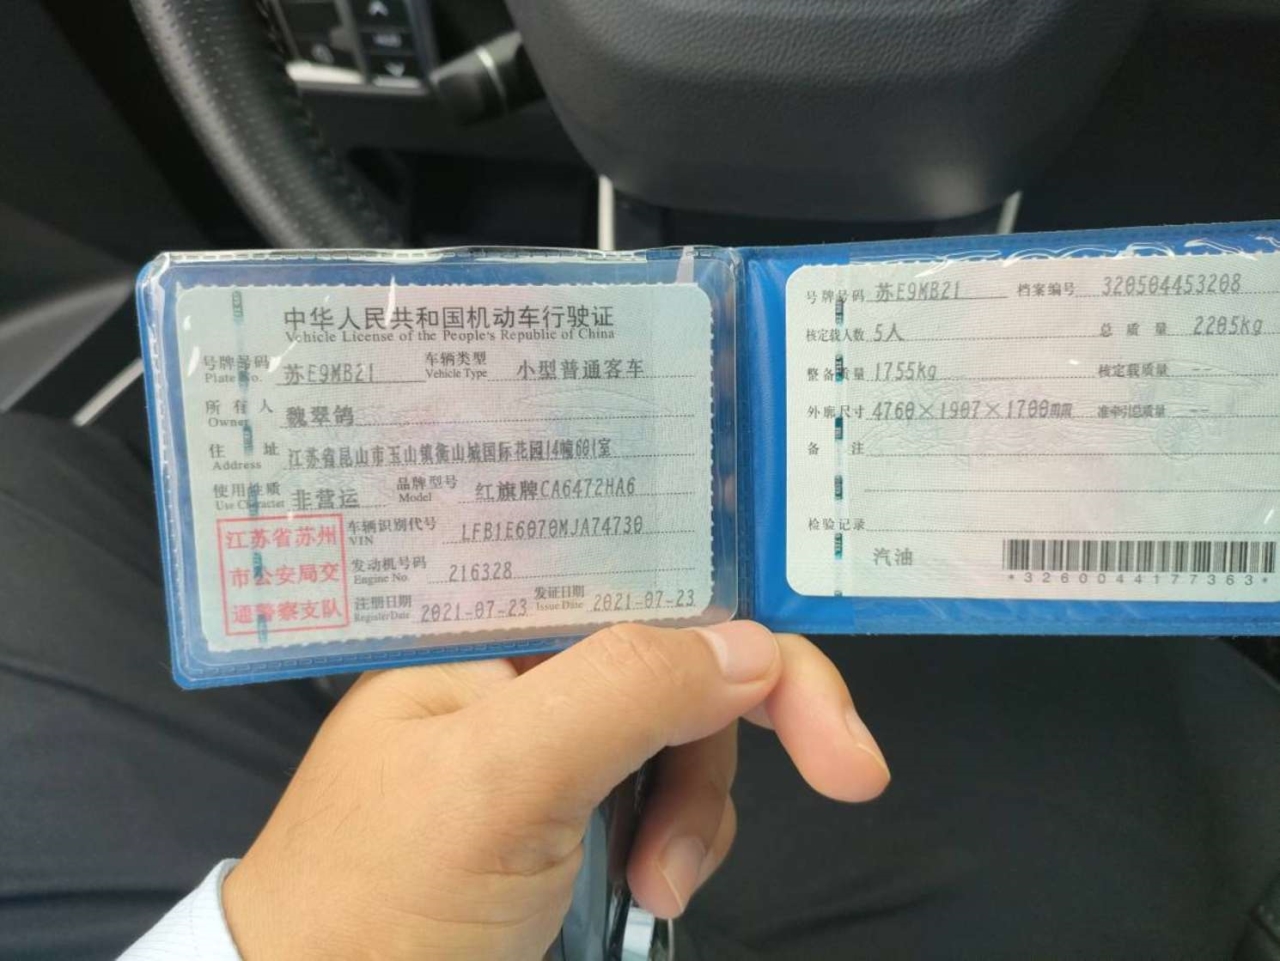 中华人民共和国机动车行驶证
Vehicle License of the People's Republic of China
号牌号码 苏E9MB21 车辆类型 小型普通客车
Plate No. Vehicle Type
所有人 魏翠鸽
Owner
住址 江苏省昆山市玉山镇衡山城国际花园14幢601室
Address
使用性质 非营运 品牌型号 红旗牌CA6472HA6
Use Character Model
江苏省苏州
市公安局交
通警察支队
车辆识别代号 LFB1E6070MJA74730
VIN
发动机号码 216328
Engine No.
注册日期 2021-07-23 发证日期 2021-07-23
Register Date Issue Date
号牌号码 苏E9MB21 档案编号 320504453208
核定载人数 5人 总质量 2205kg
整备质量 1755kg 核定载质量 --
外廓尺寸 4760×1907×1700mm 准牵引总质量 --
备注
检验记录
汽油
*3260044177363*